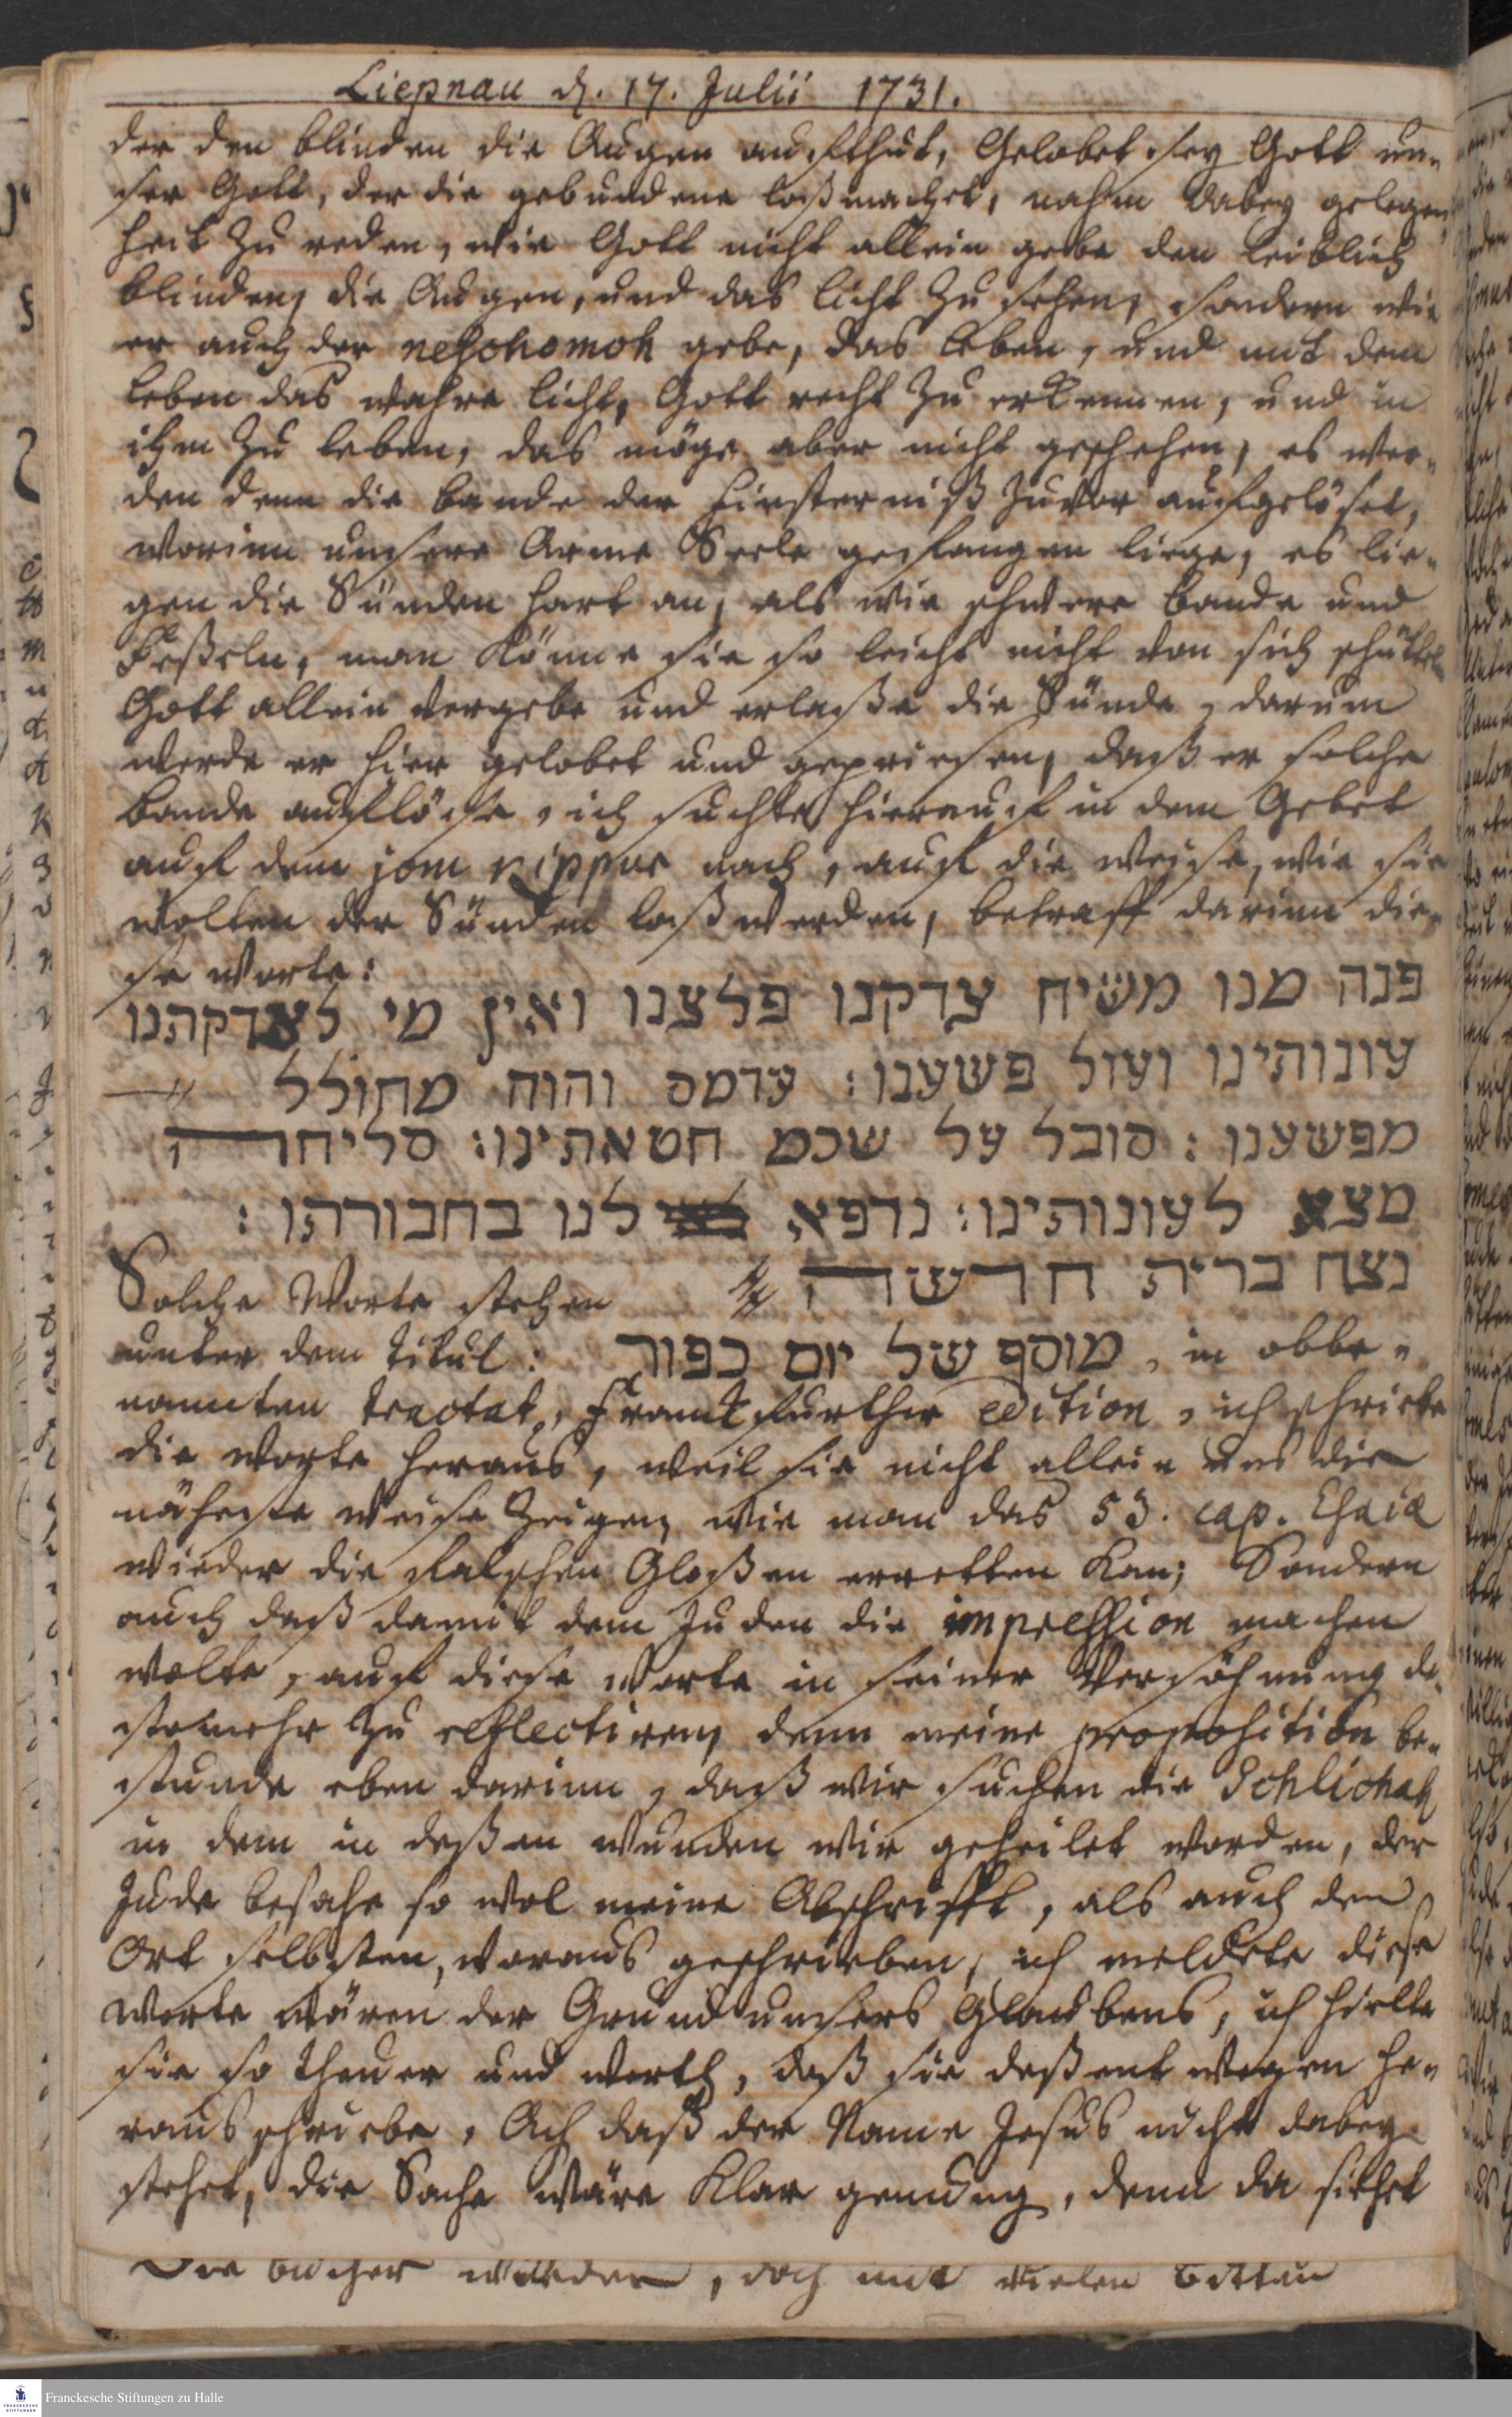 Liepnau d. 17. Julii 1731.
der den blinden die Augen aufthut, Gelobet sey Gott un-
ser Gott, der die gebundene loßmachet, nahm dabey gelegen
heit zu reden, wie Gott nicht allein gebe den leiblich
blinden, die Augen, und das licht zu sehen, sondern wie
er auch der neschomoh gebe, das leben, und mit dem
leben das wahre licht, Gott recht zu erkennen, und in
ihm zu leben, das möge aber nicht geschehen, es wer-
den denn die bande der Finsterniß zuvor aufgelöset,
worinn unsere Arme Seele gefangen liege, es lie-
gen die Sünden hart an, als wie schwere bande und
Feßeln, man könne sie so leicht nicht von sich schütteln
Gott allein vergebe und erlaße die Sünde, darum
werde er hier gelobet und gepriesen, daß er solche
bande auflöse, ich suchte hierauf in dem Gebet
auf dem jom kippur nach, auf die weise, wie sie
wolten der Sünden loß werden, betraff darinn die-
se worte:
פנה מנו משיח צדקנו פלצנו ואין מי לצדקתנו
עונותינו ועול פשענו: עומס והוא מחולל
מפשענו: סובל על שכם חטאתינו: סליחה
מצא לעונותינו: נרפא לנו בחבורתו:
נצח ברית חדשה
Solche Worte stehen
unter dem titul: מוסף של יום כפור, in obbe-
nannten tractat, Franckfurther edition, ich schriebe
die worte heraus, weil sie nicht allein uns die
näheste weise zeigen, wie man das 53. cap. Esaiæ
wieder die falschen Gloßen erretten kan; Sondern
auch daß damit dem Juden die impression machen
wolte, auf diese worte in seiner Versöhnung de-
stomehr zu reflectiren, denn meine proposition be-
stunde eben darinn, daß wir suchen die Schlichah
in dem in deßen wunden wir geheilet worden, der
Jude besahe so wol meine Abschrifft, als auch den
Ort selbsten, woraus geschrieben, ich meldete diese
worte wären der Grund unsers Glaubens, ich hielte
sie so theuer und werth, daß sie deßentwegen he-
raus schriebe, Ach daß der Name Jesus nicht dabey
stehet, die Sache wäre klar genung, denn da siehet
Die bücher wurden, doch mit vielen bitten
Franckesche Stiftungen zu Halle